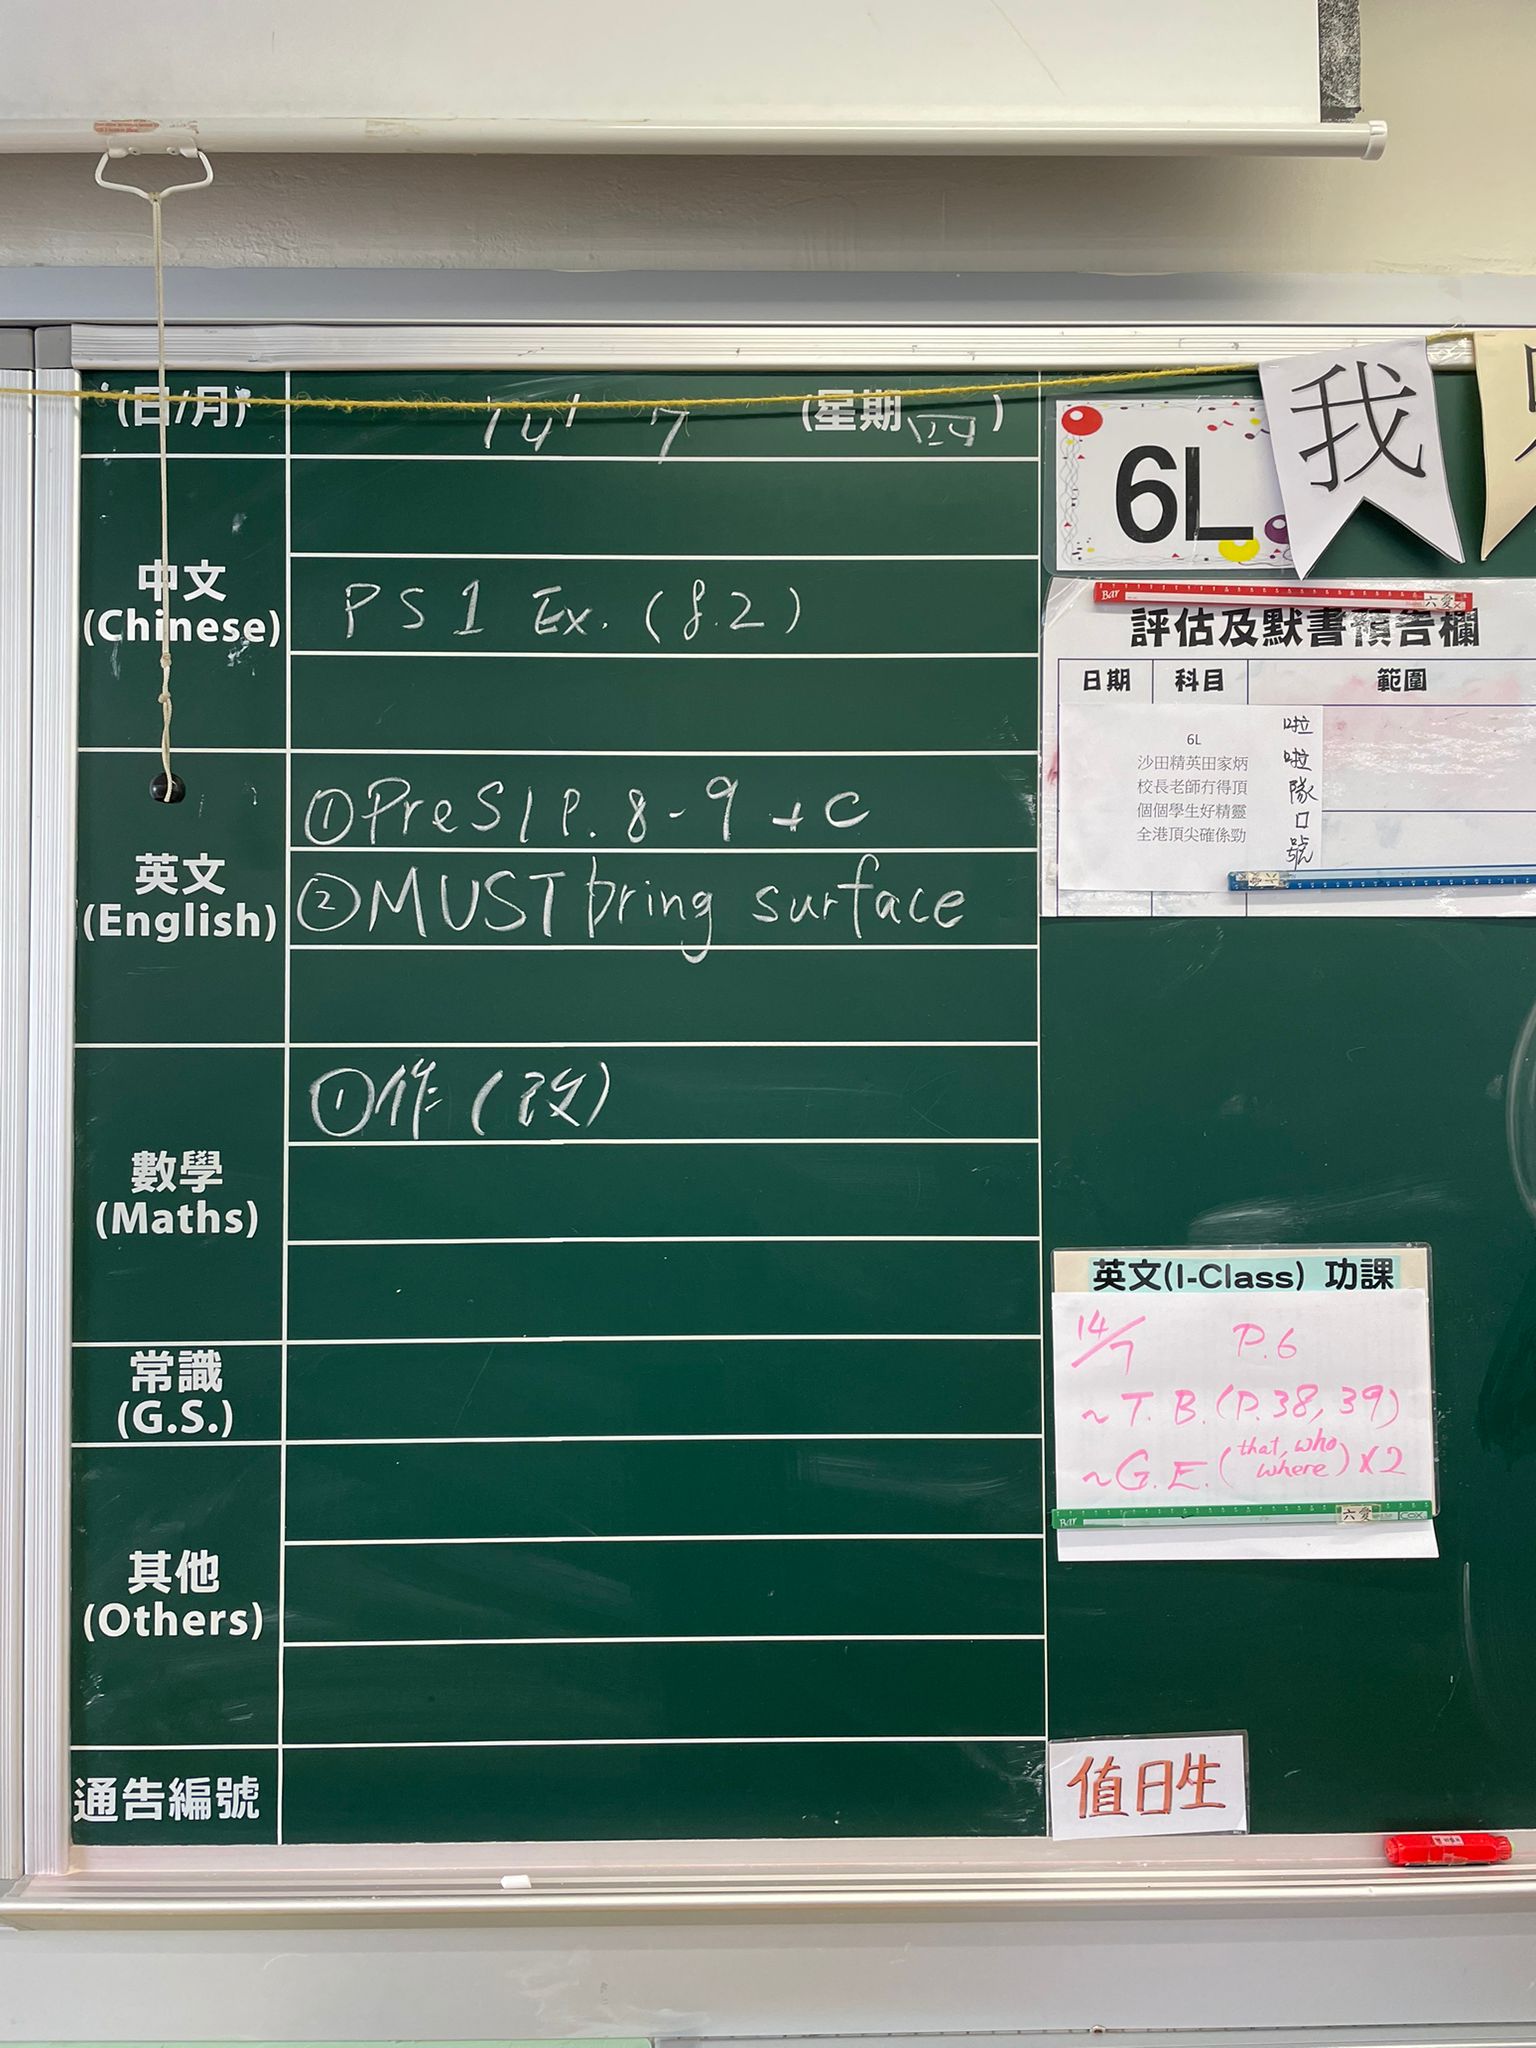 (日/月) 14 7 (星期四)
中文
(Chinese)
PS1 Ex. (8.2)
英文
(English)
①PreS1 P. 8-9 + C
②MUST bring surface
數學
(Maths)
①作(改)
常識
(G.S.)
其他
(Others)
通告編號
6L
我
Bar 六愛
評估及默書預告欄
日期 科目 範圍
6L
沙田精英田家炳
校長老師冇得頂
個個學生好精靈
全港頂尖確係勁
啦啦隊口號
英文(I-Class) 功課
14/7 P.6
~T.B.(P.38, 39)
~G.E.(that, who where)x2
Bar 六愛 COX
值日生